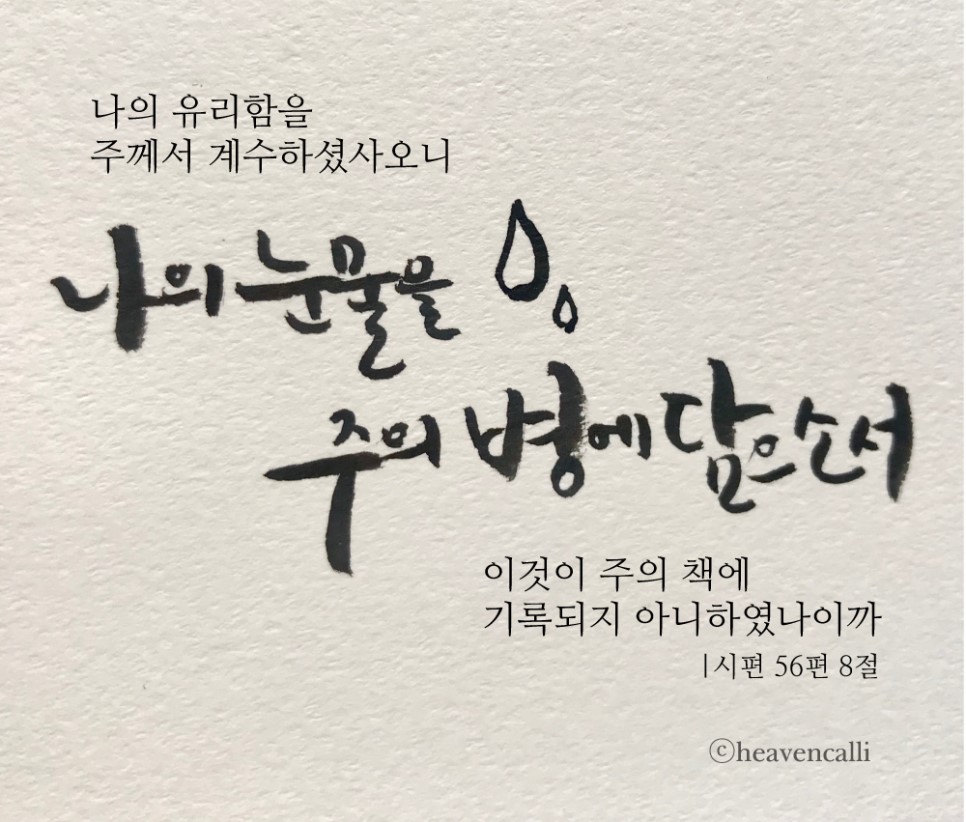 나의 유리함을
주께서 계수하셨사오니
나의 눈물을
주의 병에 담으소서
이것이 주의 책에
기록되지 아니하였나이까
|시편 56편 8절
ⓒheavencalli